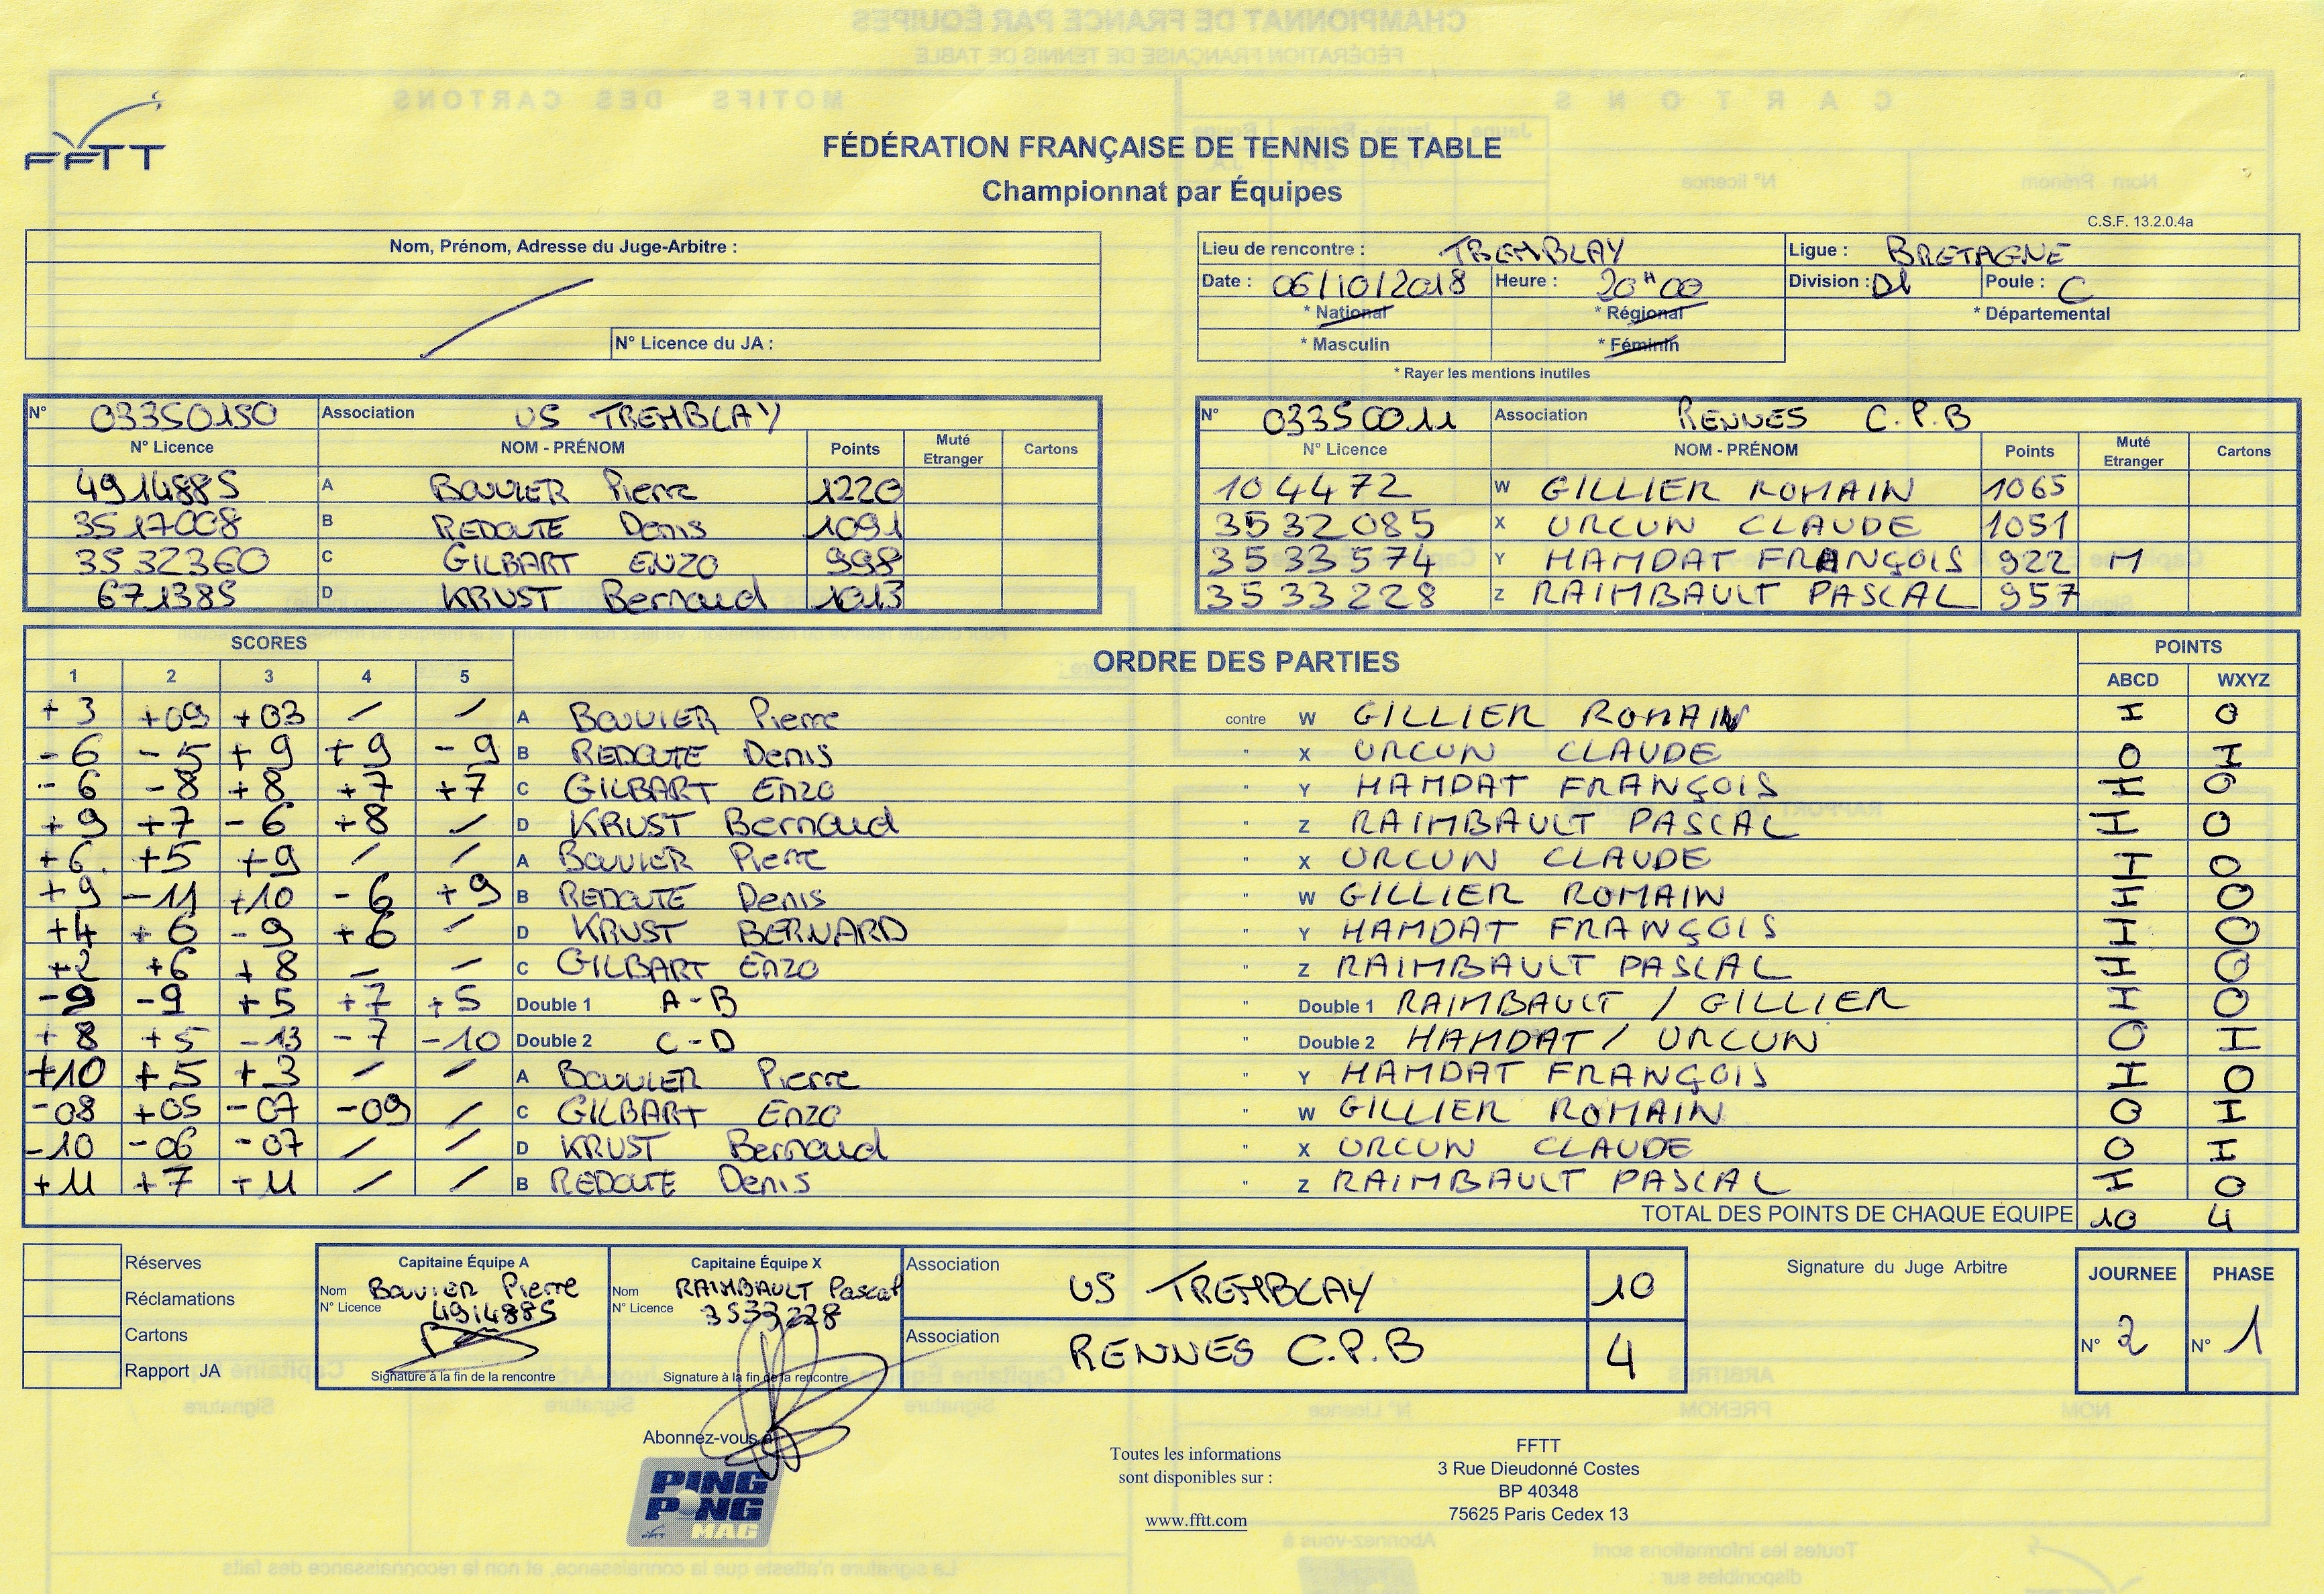 FFTT
FÉDÉRATION FRANÇAISE DE TENNIS DE TABLE
Championnat par Équipes
C.S.F. 13.2.0.4a
Nom, Prénom, Adresse du Juge-Arbitre :
N° Licence du JA :
Lieu de rencontre : TREMBLAY Ligue : BRETAGNE
Date : 06/10/2018 Heure : 20H00 Division : D1 Poule : C
* National * Régional * Départemental
* Masculin * Féminin
* Rayer les mentions inutiles
N° 03350150 Association US TREMBLAY
N° Licence NOM - PRÉNOM Points Muté Etranger Cartons
4914885 A BOUVIER Pierre 1220
3517008 B REDOUTE Denis 1091
3532360 C GILBART ENZO 998
671385 D KRUST Bernard 1013
N° 03350011 Association RENNES C.P.B
N° Licence NOM - PRÉNOM Points Muté Etranger Cartons
104472 W GILLIER ROMAIN 1065
3532085 X URCUN CLAUDE 1051
3533574 Y HAMDAT FRANÇOIS 922 M
3533228 Z RAIMBAULT PASCAL 957
SCORES ORDRE DES PARTIES POINTS
1 2 3 4 5 ABCD WXYZ
+3 +09 +03 / / A BOUVIER Pierre contre W GILLIER ROMAIN I 0
-6 -5 +9 +9 -9 B REDOUTE Denis " X URCUN CLAUDE 0 I
-6 -8 +8 +7 +7 C GILBART Enzo " Y HAMDAT FRANÇOIS I 0
+9 +7 -6 +8 / D KRUST Bernard " Z RAIMBAULT PASCAL I 0
+6 +5 +9 / / A BOUVIER Pierre " X URCUN CLAUDE I 0
+9 -11 +10 -6 +9 B REDOUTE Denis " W GILLIER ROMAIN I 0
+4 +6 -9 +6 / D KRUST BERNARD " Y HAMDAT FRANÇOIS I 0
+2 +6 +8 / / C GILBART Enzo " Z RAIMBAULT PASCAL I 0
-9 -9 +5 +7 +5 Double 1 A-B " Double 1 RAIMBAULT / GILLIER I 0
+8 +5 -13 -7 -10 Double 2 C-D " Double 2 HAMDAT / URCUN 0 I
+10 +5 +3 / / A BOUVIER Pierre " Y HAMDAT FRANÇOIS I 0
-08 +05 -07 -09 / C GILBART Enzo " W GILLIER ROMAIN 0 I
-10 -06 -07 / / D KRUST Bernard " X URCUN CLAUDE 0 I
+11 +7 +11 / / B REDOUTE Denis " Z RAIMBAULT PASCAL I 0
TOTAL DES POINTS DE CHAQUE EQUIPE 10 4
Réserves
Réclamations
Cartons
Rapport JA
Capitaine Équipe A
Nom BOUVIER Pierre
N° Licence 4914885
Signature à la fin de la rencontre
Capitaine Équipe X
Nom RAIMBAULT Pascal
N° Licence 3533228
Signature à la fin de la rencontre
Association US TREMBLAY 10
Association RENNES C.P.B 4
Signature du Juge Arbitre
JOURNEE PHASE
N° 2 N° 1
Abonnez-vous à
PING PONG MAG
Toutes les informations
sont disponibles sur :
www.fftt.com
FFTT
3 Rue Dieudonné Costes
BP 40348
75625 Paris Cedex 13